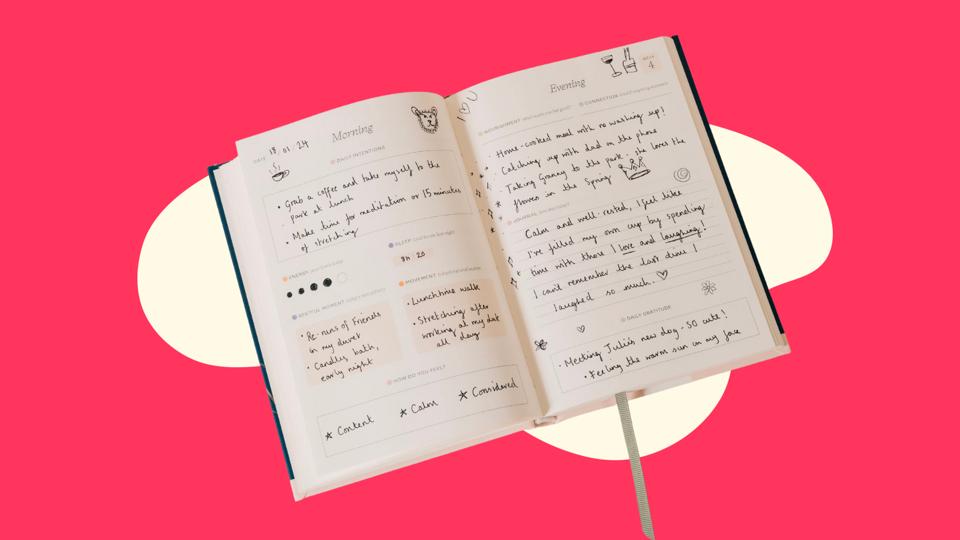 Morning
DATE 18.01.24
DAILY INTENTIONS
• Grab a coffee and take myself to the
park at lunch
• Make time for meditation or 15 minutes
of stretching
ENERGY
SLEEP
8h 20
RESTFUL MOMENT
• Re-runs of Friends
in my duvet
• Candles, bath,
early night
MOVEMENT
• Lunchtime walk
• Stretching after
working at my desk
all day
HOW DO YOU FEEL?
★ Content
★ Calm
★ Considered
Evening
WEEK
4
NOURISHMENT
CONNECTION
• Home-cooked meal with no washing up!
• Catching up with dad on the phone
• Taking Granny to the park - she loves the
flowers in the Spring
JOURNAL
Calm and well-rested, I feel like
I've filled my own cup by spending
time with those I love and laughing!
I can't remember the last time I
laughed so much.
DAILY GRATITUDE
• Meeting Julia's new dog - SO cute!
• Feeling the warm sun on my face